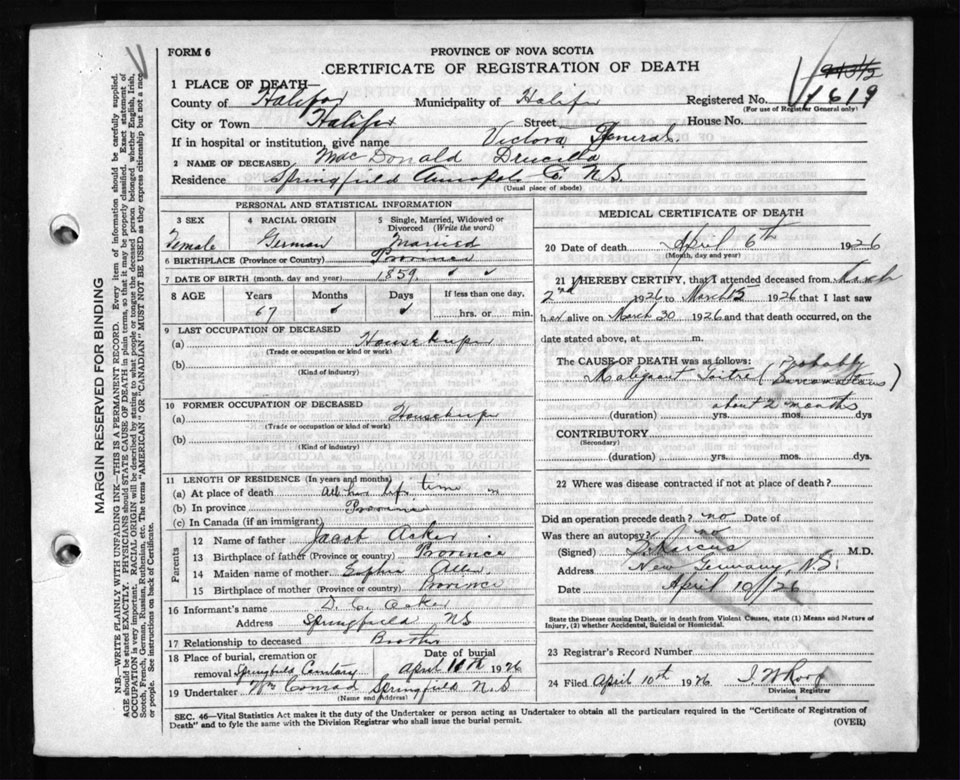 FORM 6
PROVINCE OF NOVA SCOTIA
CERTIFICATE OF REGISTRATION OF DEATH
1 PLACE OF DEATH—
County of Halifax Municipality of Halifax Registered No. 1619
(For use of Registrar General only)
City or Town Halifax Street House No.
If in hospital or institution, give name Victora General.
2 NAME OF DECEASED MacDonald Drucilla
Residence Springfield Annapolis Co. N.S.
(Usual place of abode)
PERSONAL AND STATISTICAL INFORMATION
3 SEX 4 RACIAL ORIGIN 5 Single, Married, Widowed or Divorced (Write the word)
Female German Married
6 BIRTHPLACE (Province or Country) Province
7 DATE OF BIRTH (month, day and year) 1859
8 AGE Years Months Days If less than one day,
67 hrs. or min.
9 LAST OCCUPATION OF DECEASED
(a) Housekeeper
(Trade or occupation or kind or work)
(b)
(Kind of industry)
10 FORMER OCCUPATION OF DECEASED
(a) Housekeeper
(Trade or occupation or kind of work)
(b)
(Kind of industry)
11 LENGTH OF RESIDENCE (In years and months)
(a) At place of death all her life time
(b) In province Province
(c) In Canada (if an immigrant)
Parents
12 Name of father Jacob Acker
13 Birthplace of father (Province or country) Province
14 Maiden name of mother Sophia Allen
15 Birthplace of mother (Province or country) Province
16 Informant's name D. C. Acker
Address Springfield NS
17 Relationship to deceased Brother
18 Place of burial, cremation or removal Springfield Cemetary Date of burial April 10th 1926
19 Undertaker Wm Conrad Springfield N.S
(Name and Address)
MEDICAL CERTIFICATE OF DEATH
20 Date of death April 6th 1926
(Month, day and year)
21 I HEREBY CERTIFY, that I attended deceased from March
2nd 1926 to March 5 1926 that I last saw
her alive on March 30 1926 and that death occurred, on the
date stated above, at m.
The CAUSE OF DEATH was as follows:
Malignant Goitre (Probably )
about 2 months
(duration) yrs. mos. dys
CONTRIBUTORY
(Secondary)
(duration) yrs. mos. dys.
22 Where was disease contracted if not at place of death?
Did an operation precede death? no Date of
Was there an autopsy? no
(Signed) M.D.
Address New Germany, N.S.
Date April 10/26
State the Disease causing Death, or in death from Violent Causes, state (1) Means and Nature of Injury, (2) whether Accidental, Suicidal or Homicidal.
23 Registrar's Record Number
24 Filed April 10th 1926
Division Registrar
SEC. 46—Vital Statistics Act makes it the duty of the Undertaker or person acting as Undertaker to obtain all the particulars required in the "Certificate of Registration of
Death" and to fyle the same with the Division Registrar who shall issue the burial permit. (OVER)
MARGIN RESERVED FOR BINDING
N.B.—WRITE PLAINLY WITH UNFADING INK—THIS IS A PERMANENT RECORD. Every item of information should be carefully supplied.
AGE should be stated EXACTLY. PHYSICIANS should STATE CAUSE OF DEATH in plain terms, so that it may be properly classified. Exact statement of
OCCUPATION is very important. RACIAL ORIGIN will be described by stating to what people or tongue the deceased person belonged, whether English, Irish,
Scotch, French, German, Russian, Ruthenian, etc. The terms "AMERICAN" OR "CANADIAN" MUST NOT BE USED as they express citizenship but not a race
or people. See instructions on back of Certificate.